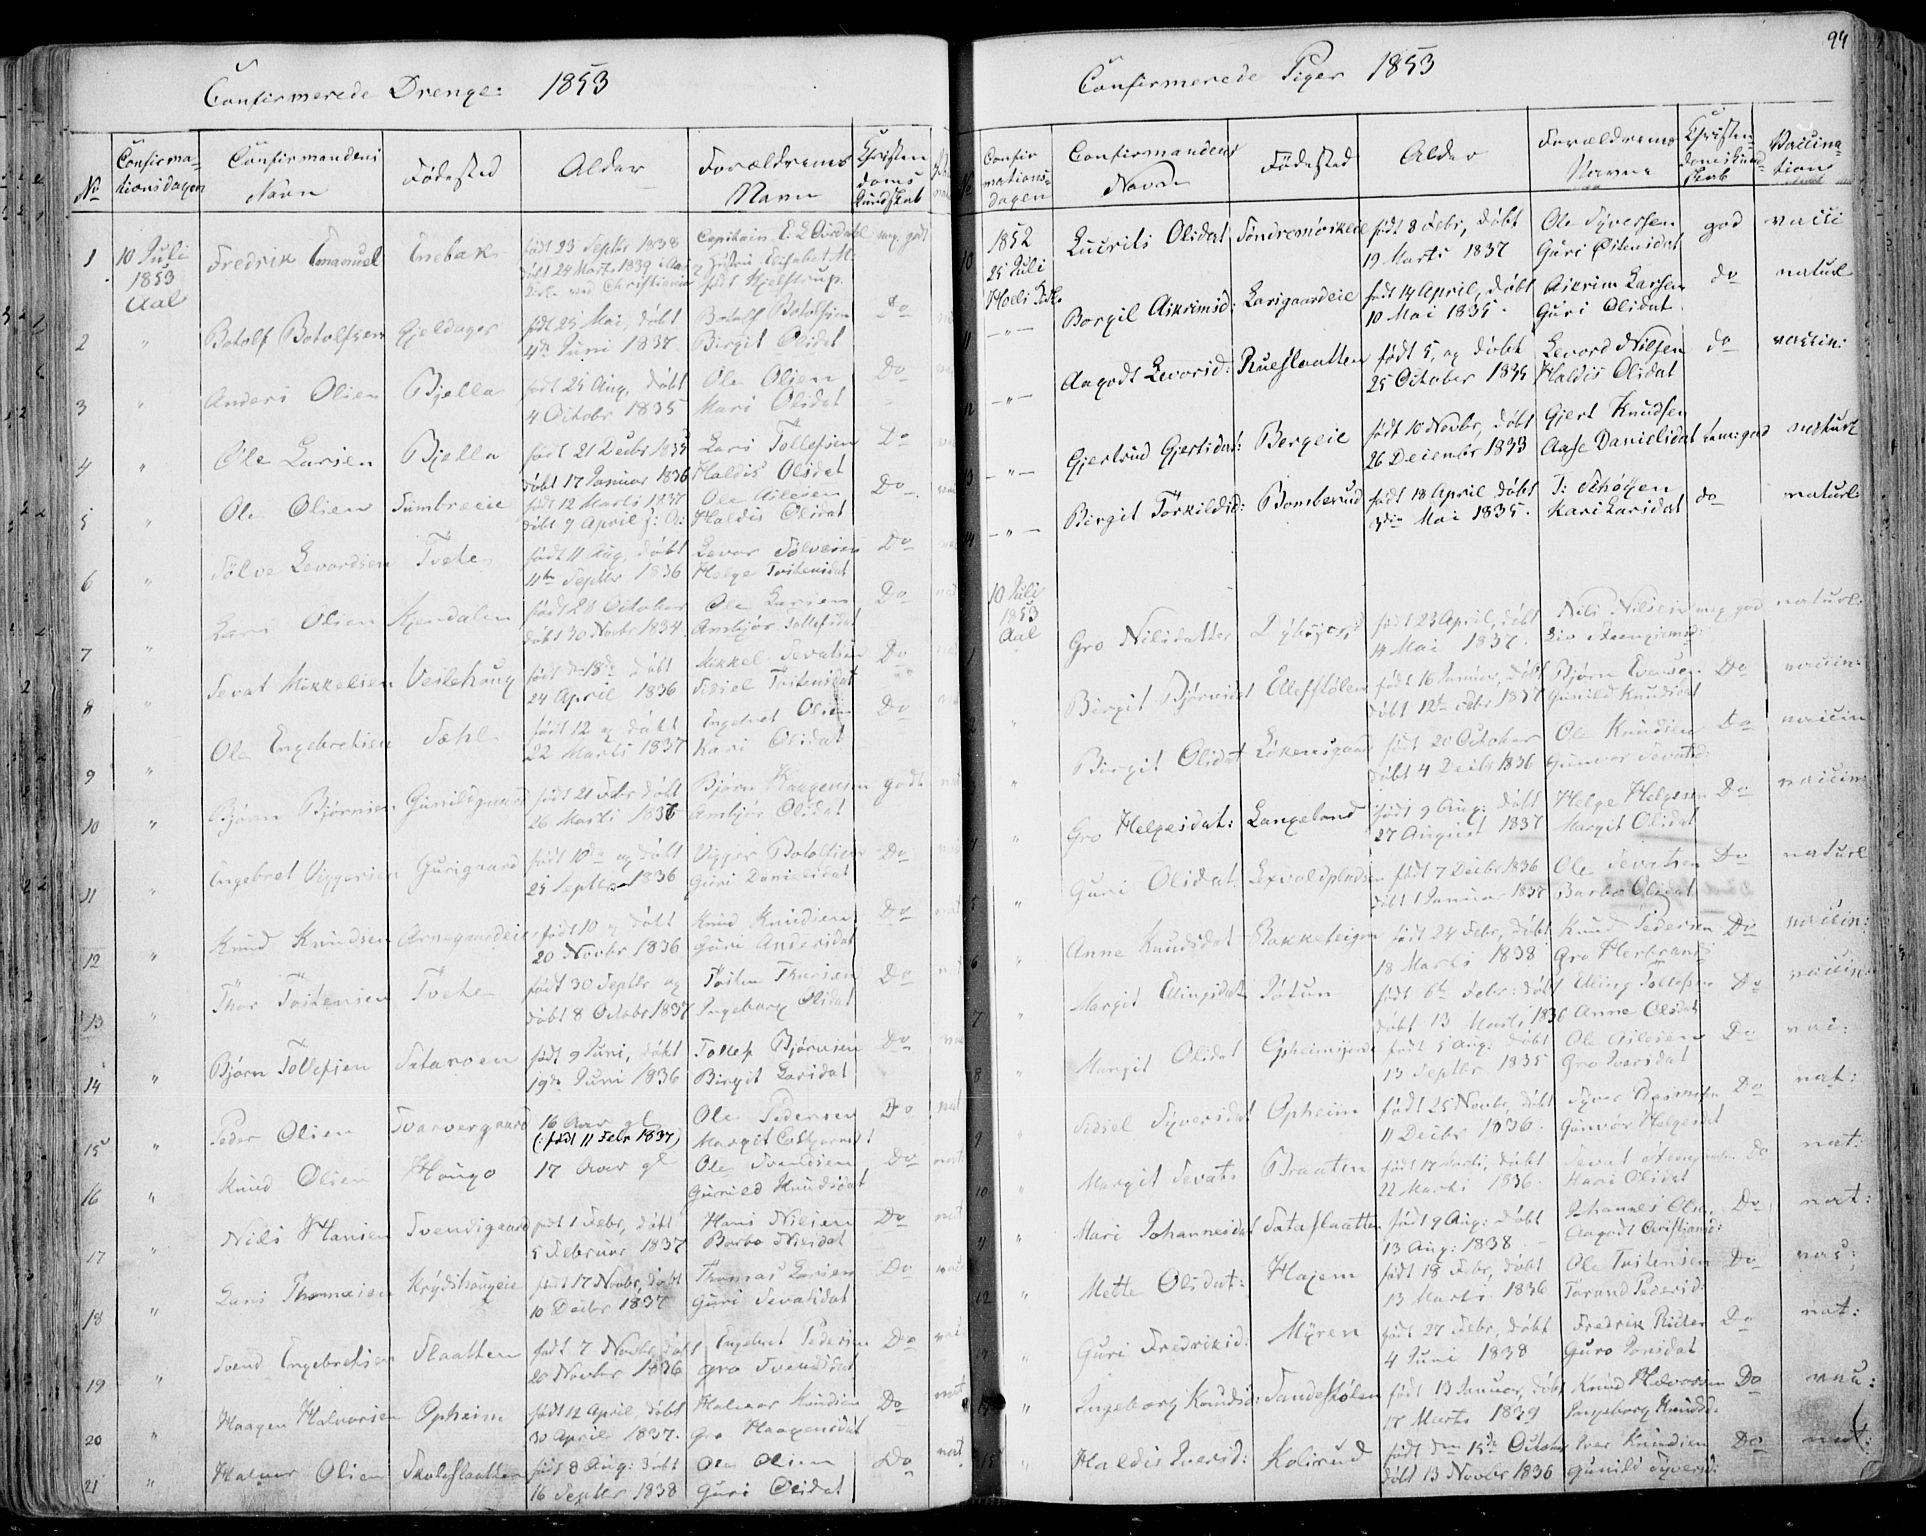 Confirmerede Drenge: 1853
No
Confirmationsdagen
Confirmandens Navn
Fødested
Alder
Forældrenes Navne
Christendoms Kundskab
1 10 Juli 1853 Aal Fredrik Emanuel Enebak født 23 Septbr 1838 døbt 24 Marts 1839 Capitain meg: godt
2 " Botolf Botolfsen Gjeldager født 25 Mai, døbt 4de Juni 1837 Botolf Botolfsen Birgit Olsdat Do
3 " Anders Olsen Bjella født 25 Aug, døbt 4 Octobr 1835 Ole Olsen Mari Olsdat Do
4 " Ole Larsen Bjella født 21 Decbr 1835 døbt 17 Januar 1836 Lars Tollefsen Haldis Olsdat Do
5 " Ole Olsen født 12 Marts 1837 døbt 9 April s: A: Ole Asles​en Haldis Olsdat Do
6 " Sölve Levordsen Tvete født 11 Aug, døbt 11te Septbr 1836 Levor Sölvesen Helge Tostensdat Do
7 " Lars Olsen født 28 October døbt 30 Novbr 1834 Ole Larsen Ambjør Tollefsdat Do
8 " Sevat Mikkelsen Veslehaug født d 18de døbt 24 April 1836 Mikkel Sevatsen Sidsel Tostensdat Do
9 " Ole Engebretsen født 12 og døbt 22 Marts 1837 Engebret Olsen Kari Olsdat Do
10 " Bjørn Bjørnsen Gunildgaard født 21 Febr døbt 26 Marts 1836 Bjørn Haagensen Ambjør Olsdat godt
11 " Engebret Viggersen Gurigaard født 10de og døbt 25 Septbr 1836 Vigger Botolfsen Guri Danielsdat Do
12 " Knud Knudsen Arnegaardeie født 10 og døbt 20 Novbr 1836 Knud Knudsen Guri Andersdat Do
13 " Thor Tostensen Tvete født 30 Septbr og døbt 8 Octobr 1837 Tosten Thorsen Ingeborg Olsdat Do
14 " Bjørn Tollefsen Sataroen født 9 Juni, døbt 19de Juni 1836 Tollef Bjørnsen Birgit Larsdat Do
15 " Peder Olsen Svarvergaard 16 Aar gl (født 11 Febr 1837) Ole Pedersen Margit Do nat
16 " Knud Olsen Haugo 17 Aar gl Ole Svendsen Gunild Knudsdat Do nat
17 " Nils Hansen Svendsgaard født 1 Febr, døbt 5 Februar 1837 Hans Nilsen Barbo Nilsdat Do nat
18 " Lars Thomasen født 17 Novbr, døbt 10 Decbr 1837 Thomas Larsen Guri Sevatsdat Do
19 " Svend Engebretsen Slaatten født 7 Novbr, døbt 20 Novbr 1836 Engebret Pedersen Gro Svendsdat Do
20 " Haagen Halvorsen Opheim født 12 April, døbt 30 April 1837. Halvor Knudsen Gro Haagensdat Do nat
21 " Halvor Olsen Skoleslaatten født 8 Aug: døbt 16 Septbr 1838 Ole Olsen Guri Olsdat Do nat
Confirmerede Piger 1853
94
No
Confirmationsdagen
Confirmandens Navn
Fødested
Alder
Forældrenes Navne
Christendomskundskab
Vaccination
10 1852 25 Juli Olsdat født 8 Febr, døbt 19 Marts 1837 Ole Syversen Guri Østensdat god vacci
11 — " — Borgil AsKrimsd: Larsgaardeie født 14 April, døbt 10 Mai 1835. Askrim Larsen Guri Olsdat do naturl
12 — " — Aagodt Levorsd: Rueslaatten født 5, og døbt 25 October 1835 Levord Nilsen Haldis Olsdat do vaccin:
13 — " — Gjertrud Gjertsdat: Bergeie født 10 Novbr, døbt 26 December 1833 Gjert Knudsen Aase Danielsdat tem: god naturl
14 — " — Birgit Torkildsd: Bomberud født 18 April døbt 3die Mai 1835. T: Schøyen Kari Larsdat do naturl
1 10 Juli 1853 Aal Gro Nilsdatter født 23 April, døbt 14 Mai 1837. Nils Nilsen Siv meg god naturl:
2 " Birgit Bjørnsdat Ellefstølen født 16 Januar, døbt 12te Febr 1837 Bjørn Evensen Gunild Knudsdat Do vaccin:
3 " Birgit Olsdat Løkensgaard født 20 October døbt 4 Decbr 1836 Ole Knudsen Gunvor Sevatsd: Do vaccin
4 " Gro Helgesdat: Langeland født 9 Aug: døbt 27 August 1837 Helge Helgesen Margit Olsdat Do vaccin
5 " Guri Olsdat Lexvoldpladsen født 7 Decbr 1836 døbt 1 Januar 1837 Ole Sevatsen Barbo Olsdat Do naturl
6 " Anne Knudsdat Bakketeigen født 24 Febr, døbt 18 Marts 1838 Knud Pedersen Gro Herbrandsd Do vaccin:
7 " Margit Ellingsdat født 6te Febr: døbt 13 Marts 1836 Elling Tollefsen Anne Olsdat Do vaccin:
8 " Margit Olsdat født 5 Aug: døbt 13 Septbr 1835 Ole Aslesen Gro Iversdat Do vac:
9 " Sidsel Syversdat Opheim født 25 Novbr, døbt 11 Decbr 1836. Syver Gunvor Helgesdat Do nat:
10 " Margit Sevats Braaten født 17 Marts, døbt 22 Marts 1836. Sevat Kari Olsdat Do nat:
11 " Mari Johannesdat Sataslaatten født 9 Aug: døbt 13 Aug: 1838 Johannes Olsen Aagodt Christiansd: Do nat:
12 " Mette Olsdat: Hajem født 18 Febr, døbt 13 Marts 1836 Ole Tostensen Torand Pedersd: Do vac;
" Guri Fredriksd: Myren født 27 Febr, døbt 4 Juni 1838 Fredrik Guro Jonsdat Do nat:
" Ingeborg Knudsd: Sandestølen født 13 Januar, døbt 17 Marts 1839 Knud Halvorsen Ingeborg Knudsd: Do vac:
15 " Haldis Iversd: Kolsrud født den 15de October døbt 13 Novbr 1836 Iver Knudsen Gunild Syversd: Do nat: